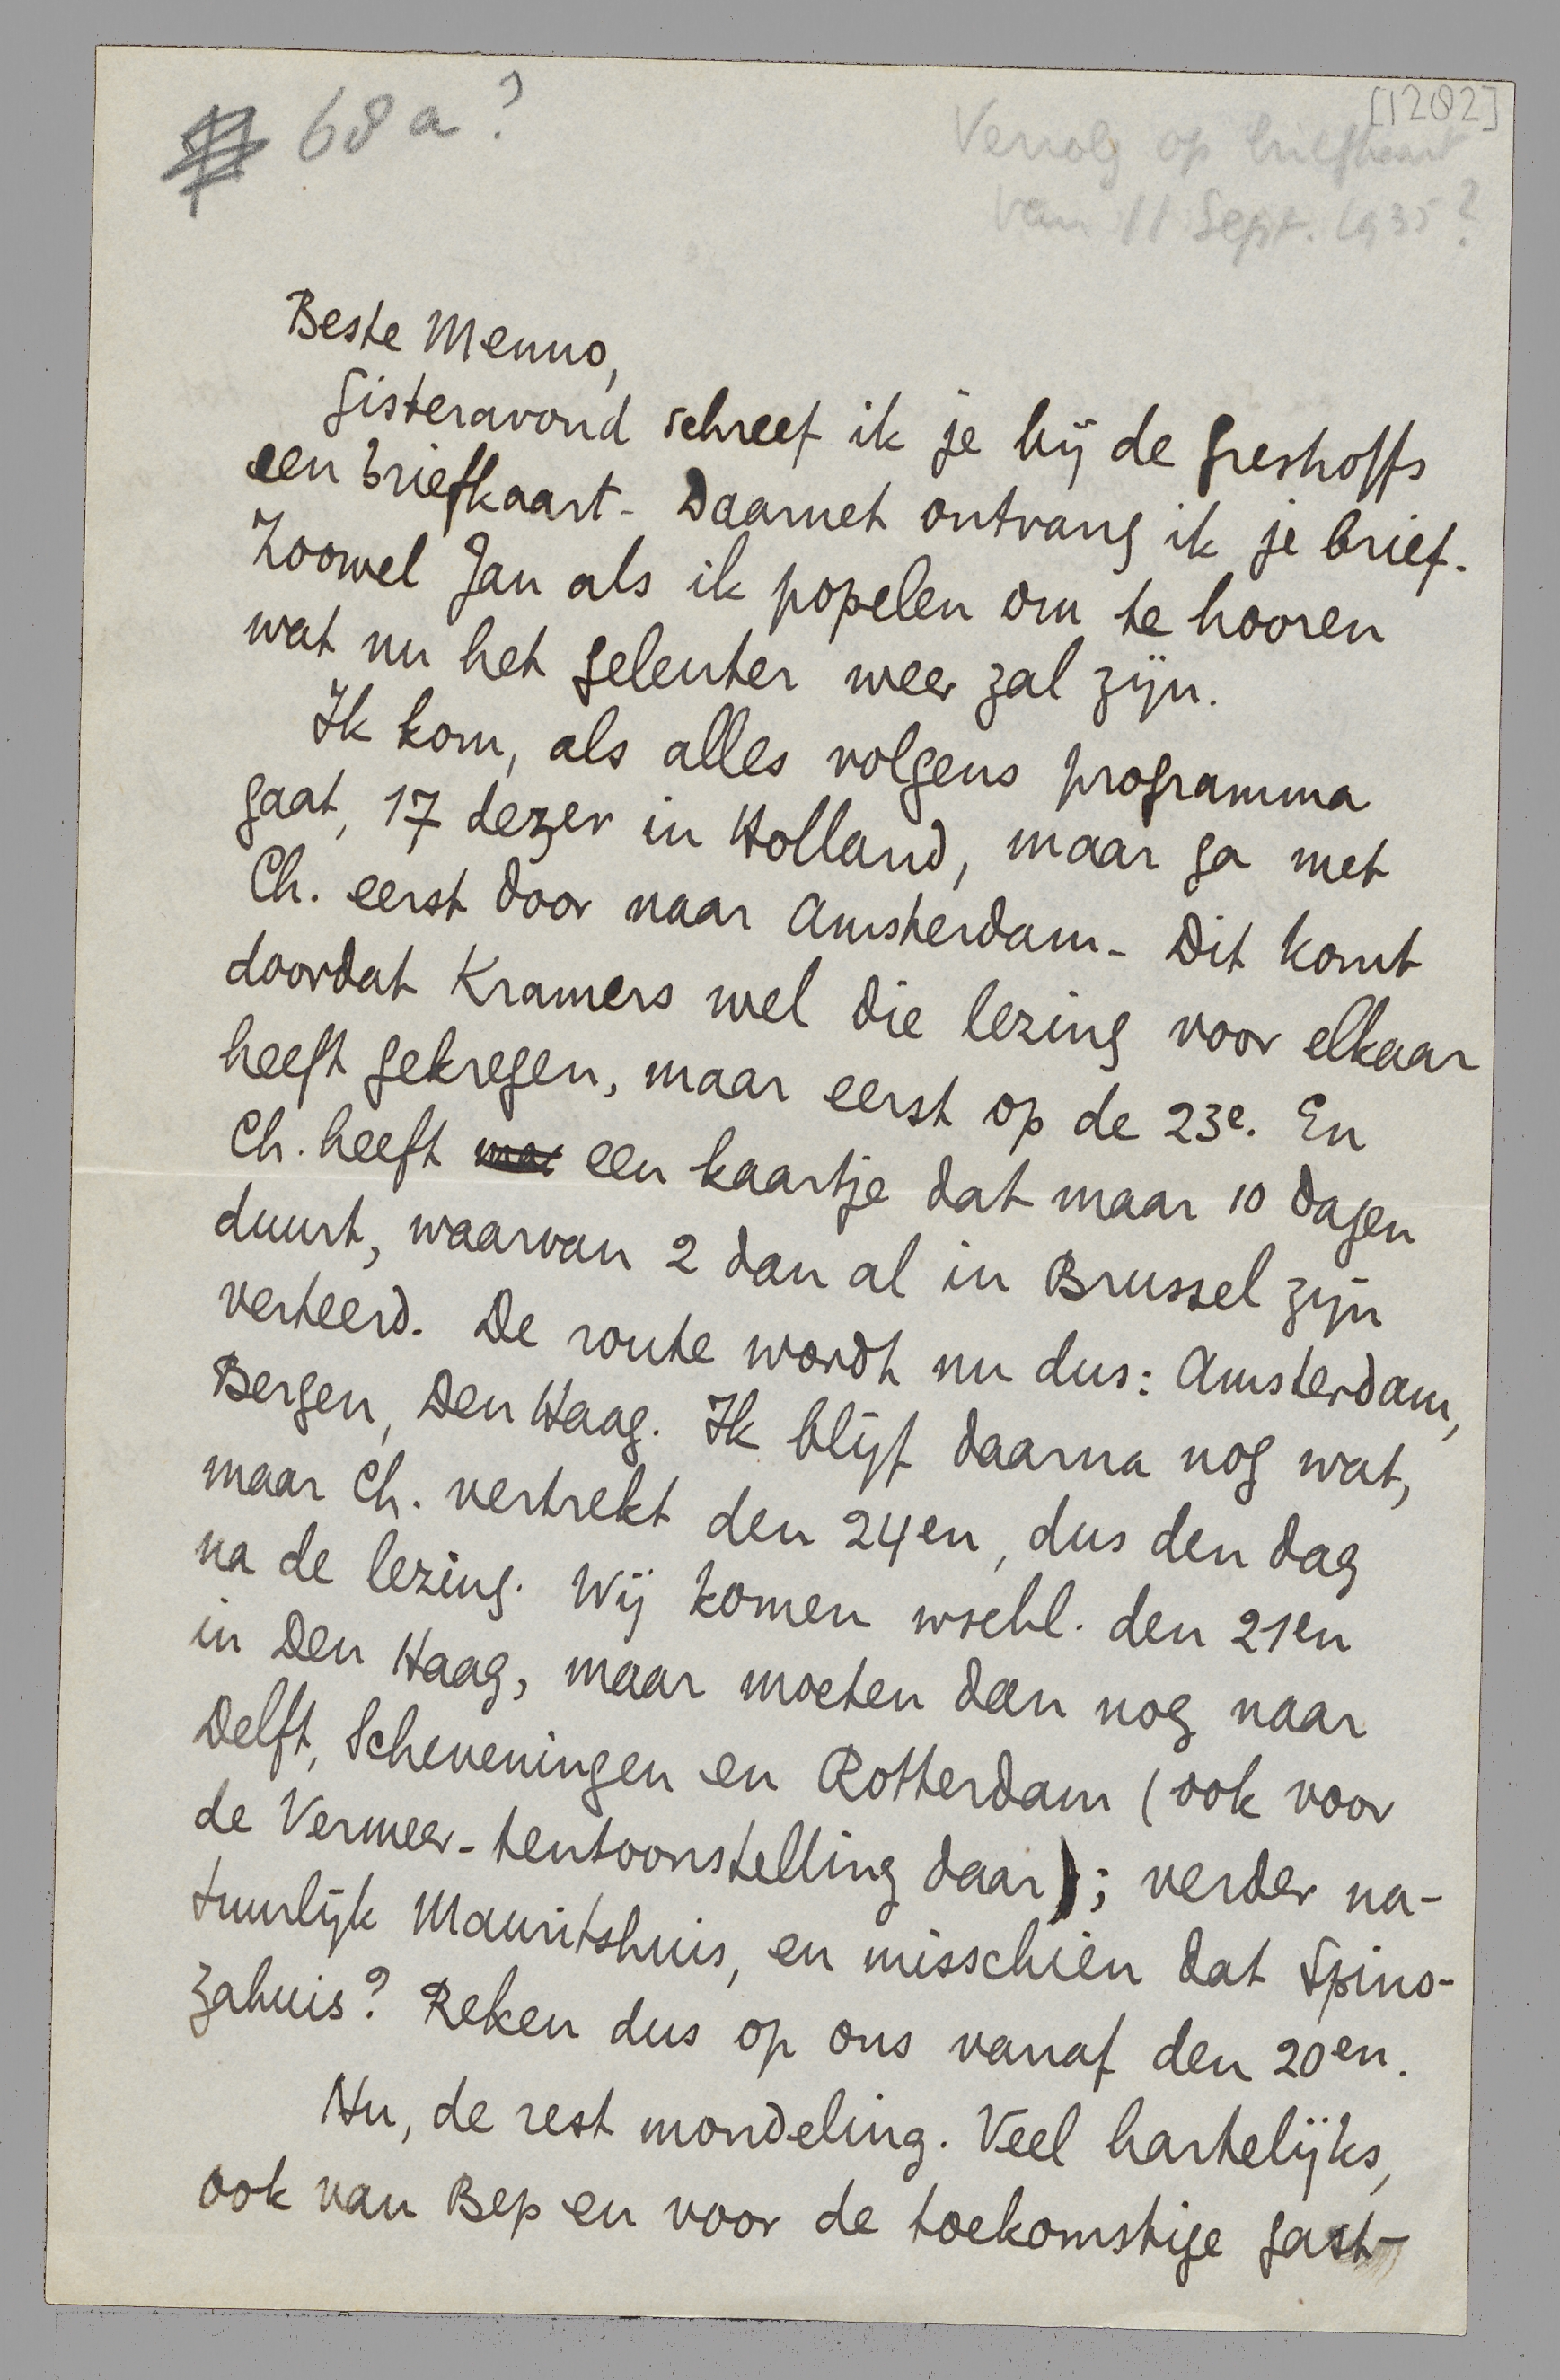 68a?
[1282]
Vervolg op briefkaart
van 11 Sept. 1935?
Beste Menno,
Gisteravond schreef ik je bij de Greshoffs
een briefkaart. Daarnet ontvang ik je brief.
Zoowel Jan als ik popelen om te hooren
wat nu het geleuter weer zal zijn.
Ik kom, als alles volgens programma
gaat, 17 dezer in Holland, maar ga met
Ch. eerst door naar Amsterdam. Dit komt
doordat Kramers wel die lezing voor elkaar
heeft gekregen, maar eerst op de 23e. En
Ch. heeft een kaartje dat maar 10 dagen
duurt, waarvan 2 dan al in Brussel zijn
verteerd. De route wordt nu dus: Amsterdam,
Bergen, Den Haag. Ik blijf daarna nog wat,
maar Ch. vertrekt den 24en, dus den dag
na de lezing. Wij komen wschl. den 21en
in Den Haag, maar moeten dan nog naar
Delft, Scheveningen en Rotterdam (ook voor
de Vermeer-tentoonstelling daar); verder na-
tuurlijk Mauritshuis, en misschien dat Spino-
zahuis? Reken dus op ons vanaf den 20en.
Nu, de rest mondeling. Veel hartelijks,
ook van Bep en voor de toekomstige gast-